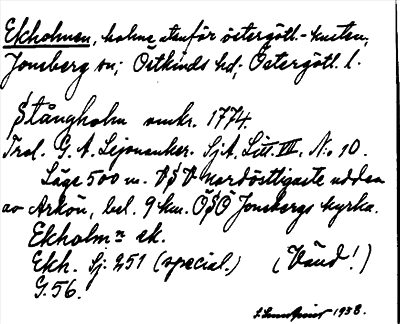 Ekholmen, holme utanför östergötl.-kusten,
Jonsberg sn; Östkinds hd, Östergötl. l.
Stångholm omkr. 1774.
Trol. G. A. Lejonanker. Sjk. Litt. VII. N:o 10.
Läge 500 m. VSV nordöstligaste udden
av Arkön, bel. 9 km. ÖSÖ Jonsbergs kyrka.
Ekholmn ek.
Ekh. Sj: 251 (special.) (Vänd!)
G. 56.
1938.